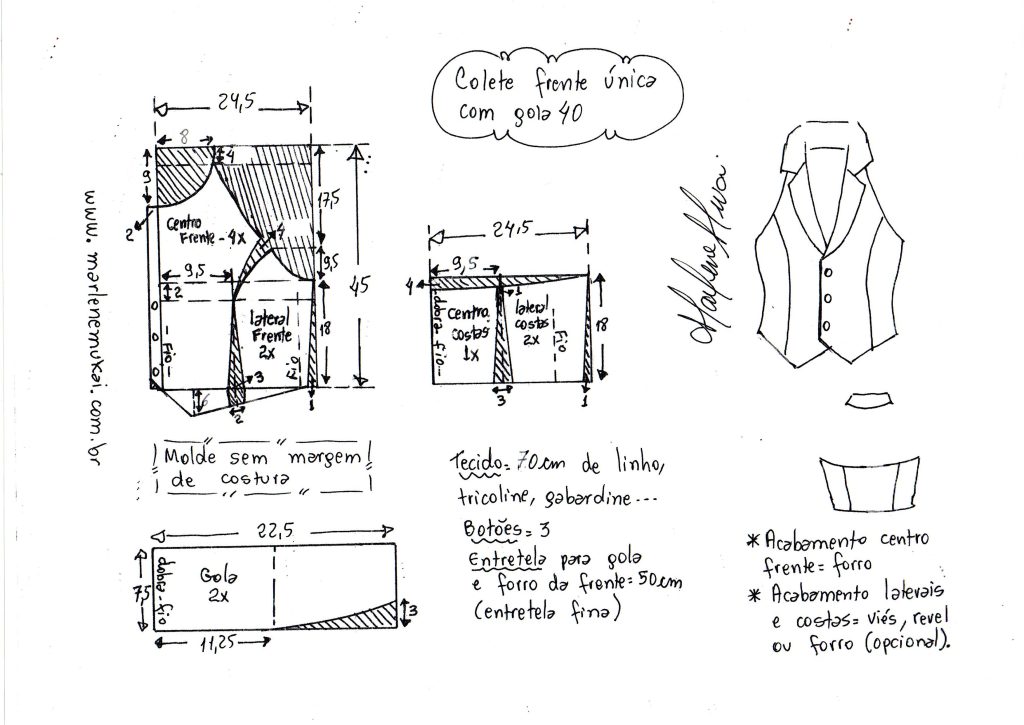 Colete frente única
com gola 40
24,5
8
4
9
17,5
2
Centro
Frente - 4x
4
9,5
9,5
2
45
lateral
Frente
2x
18
Fio
Fio
3
6
2
1
www.marlenemukai.com.br
Marlene Mukai
24,5
9,5
4
1
dobra-fio
Centro
costas
1x
lateral
costas
2x
Fio
18
3
1
Molde sem margem
de costura
22,5
7,5
dobra-fio
Gola
2x
3
11,25
Tecido = 70cm de linho,
tricoline, gabardine...
Botões = 3
Entretela para gola
e forro da frente = 50cm
(entretela fina)
* Acabamento centro
frente = forro
* Acabamento laterais
e costas = viés, revel
ou forro (opcional).